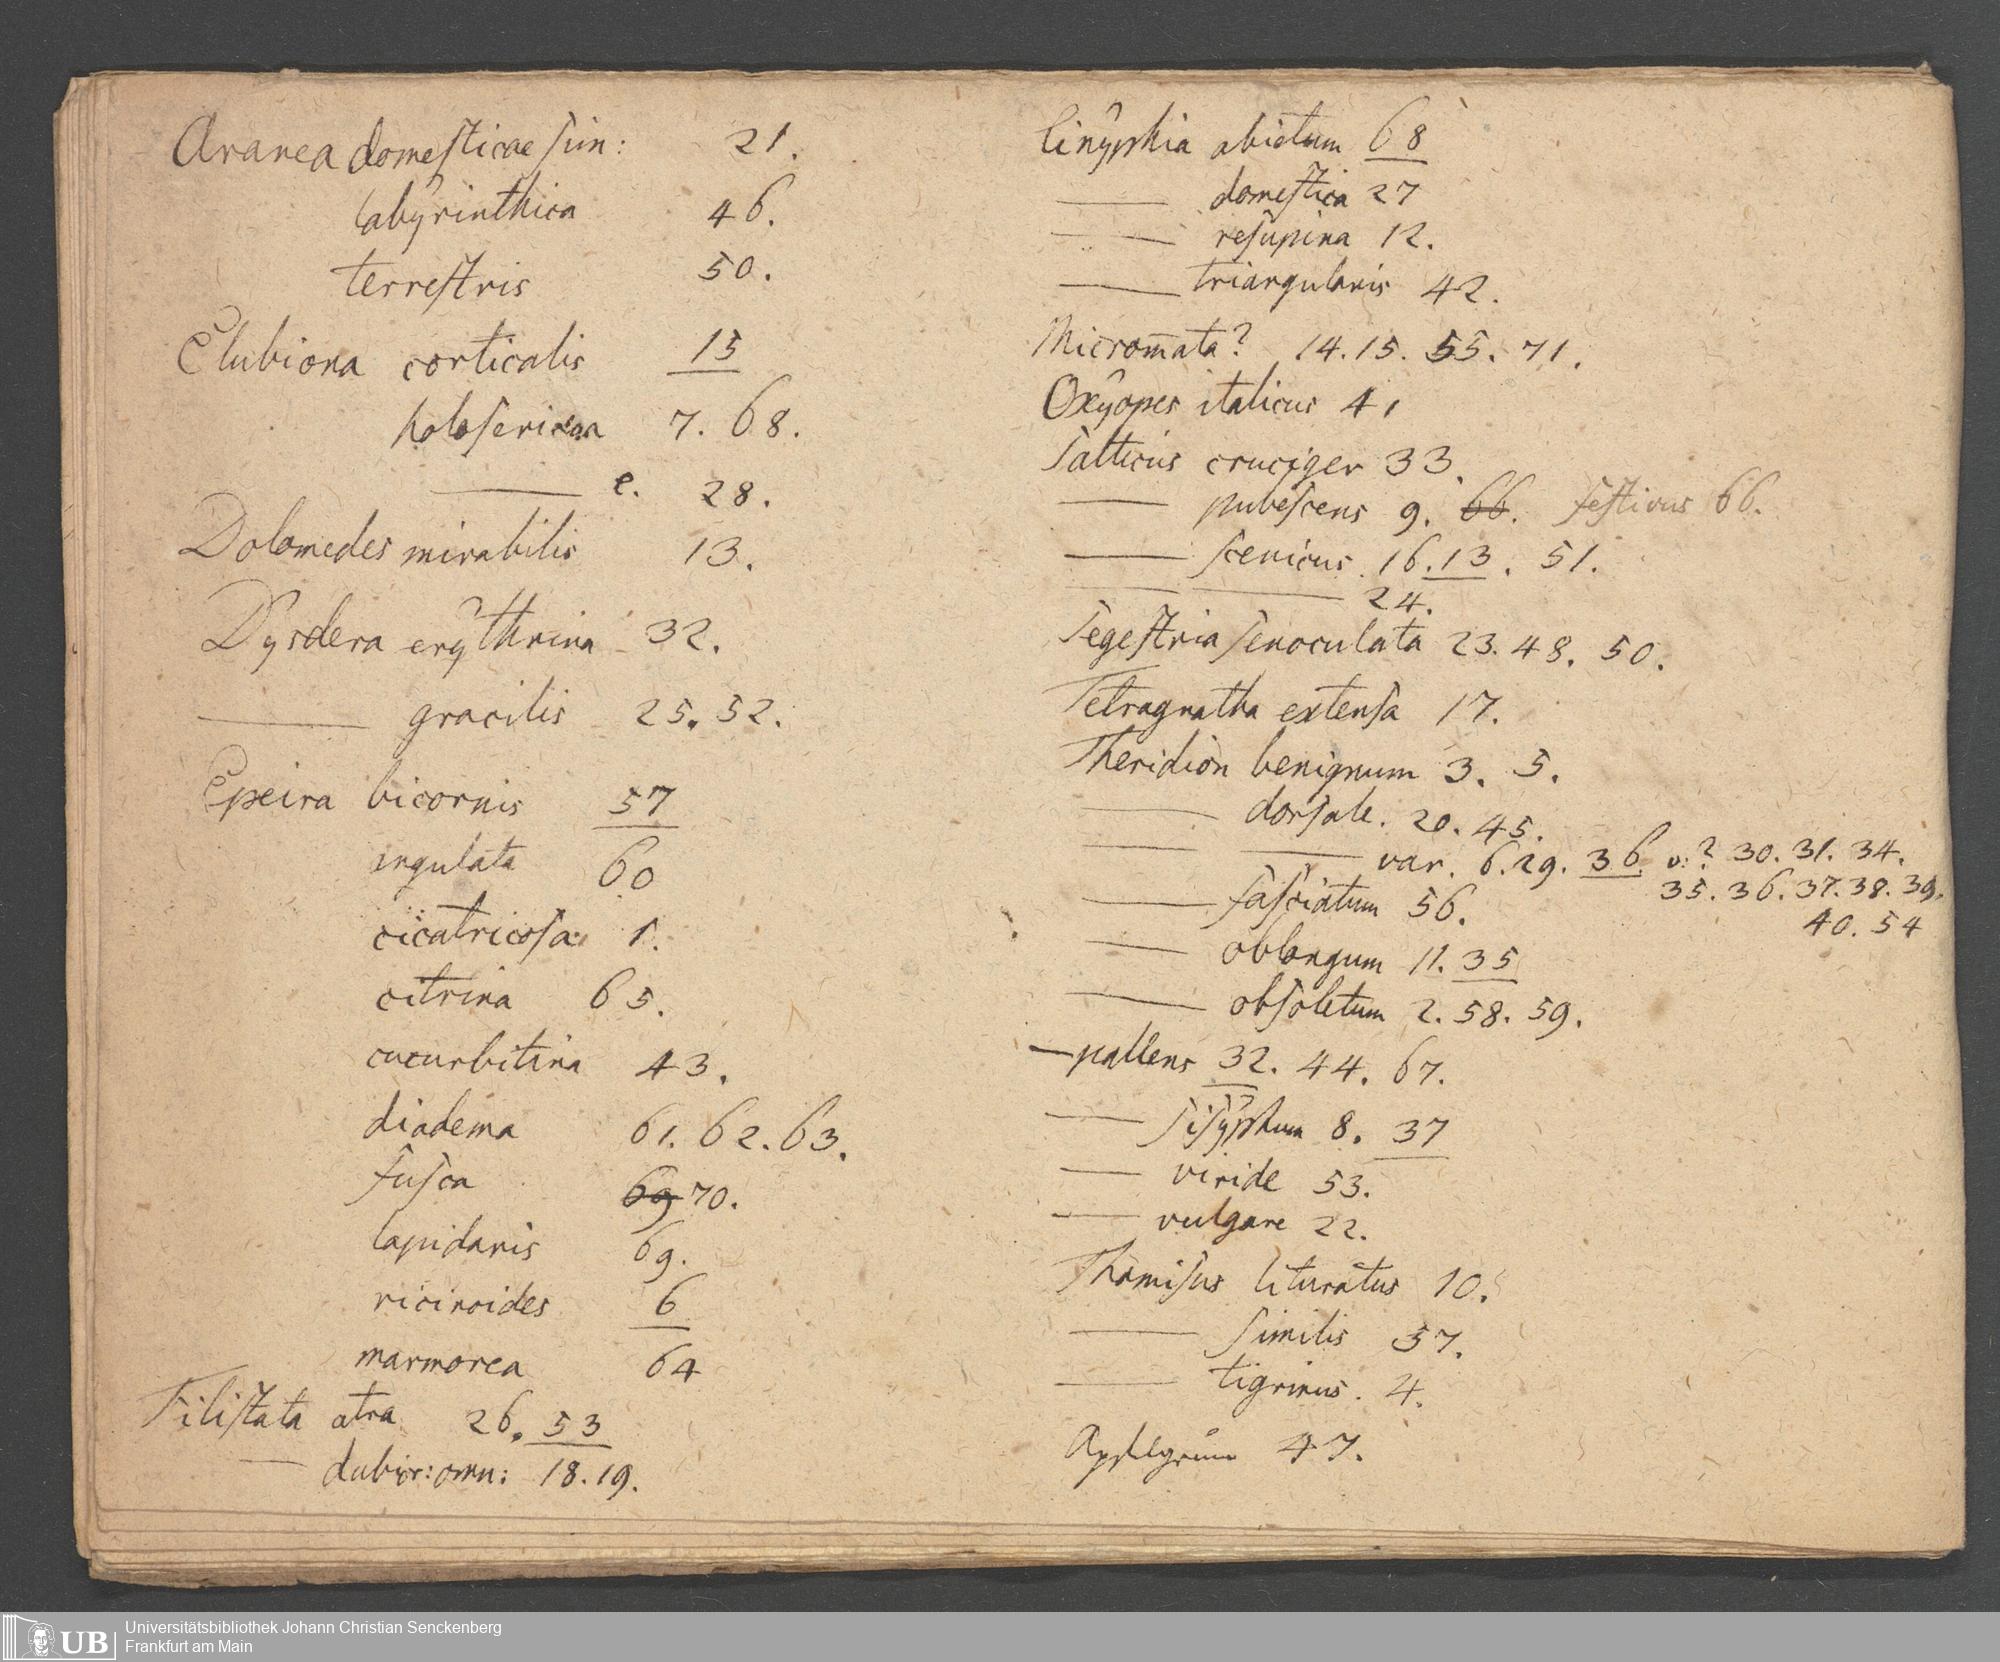 Aranea domesticae sim: 21.
labyrinthica 46.
terrestris 50.
Clubiona corticalis 15
holosericea 7. 68.
—— e. 28.
Dolomedes mirabilis 13.
Dysdera erythrina 32.
—— gracilis 25. 52.
Epeira bicornis 57
angulata 60
cicatricosa 1.
citrina 65.
cucurbitina 43.
diadema 61. 62. 63.
fusca 69 70.
lapidaris 69.
ricinoides 6
marmorea 64
Filistata atra 26. 53
—— dubior: omn: 18. 19.
Linyphia abietum 68
—— domestica 27
—— resupina 12.
—— triangularis 42.
Micromata? 14. 15. 55. 71.
Oxyopes italicus 41
Salticus cruciger 33.
—— pubescens 9. 66. festivus 66.
—— scenicus. 16. 13. 51.
—— —— 24.
Segestria senoculata 23. 48. 50.
Tetragnatha extensa 17.
Theridion benignum 3. 5.
—— dorsale. 20. 45.
—— —— var. 6. 29. 36 v:? 30. 31. 34.
35. 36. 37. 38. 39.
—— fasciatum 56.
40. 54
—— oblongum 11. 35
—— obsoletum 2. 58. 59.
— pallens 32. 44. 67.
—— sisyphum 8. 37
—— viride 53.
—— vulgare 22.
Thomisus lituratus 10.
—— similis 57.
—— tigrinus. 4.
47.
UB Universitätsbibliothek Johann Christian Senckenberg
Frankfurt am Main